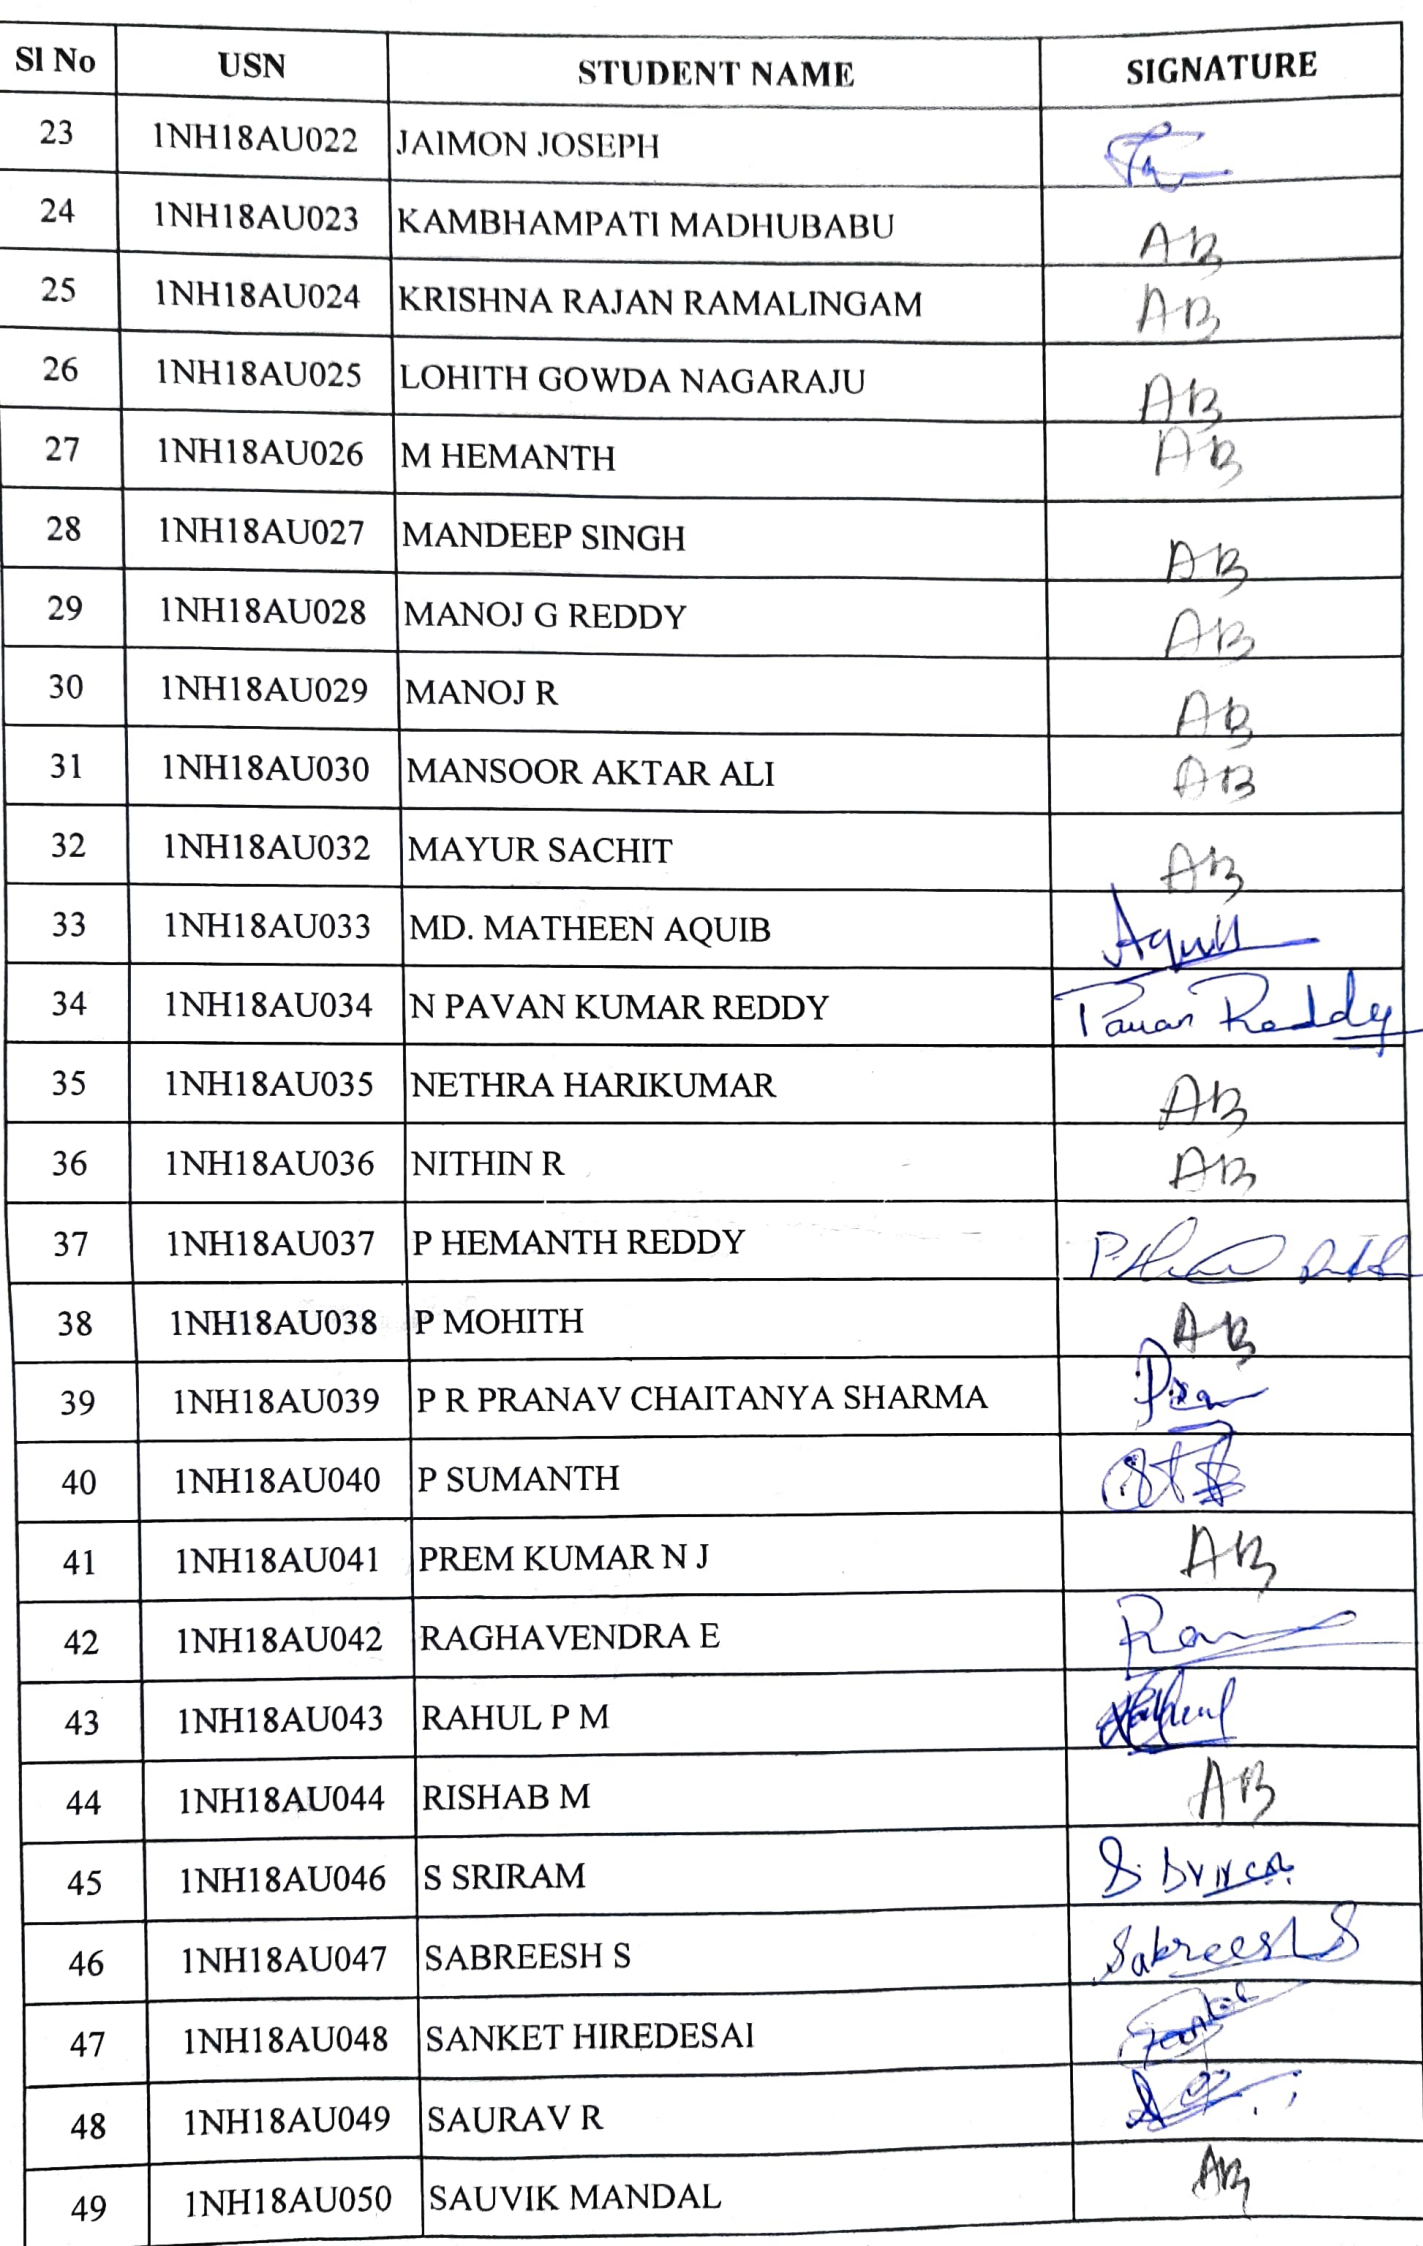 Sl No USN STUDENT NAME SIGNATURE
23 1NH18AU022 JAIMON JOSEPH
24 1NH18AU023 KAMBHAMPATI MADHUBABU AB
25 1NH18AU024 KRISHNA RAJAN RAMALINGAM AB
26 1NH18AU025 LOHITH GOWDA NAGARAJU AB
27 1NH18AU026 M HEMANTH AB
28 1NH18AU027 MANDEEP SINGH AB
29 1NH18AU028 MANOJ G REDDY AB
30 1NH18AU029 MANOJ R AB
31 1NH18AU030 MANSOOR AKTAR ALI AB
32 1NH18AU032 MAYUR SACHIT AB
33 1NH18AU033 MD. MATHEEN AQUIB Aquib
34 1NH18AU034 N PAVAN KUMAR REDDY Pavan Reddy
35 1NH18AU035 NETHRA HARIKUMAR AB
36 1NH18AU036 NITHIN R AB
37 1NH18AU037 P HEMANTH REDDY
38 1NH18AU038 P MOHITH AB
39 1NH18AU039 P R PRANAV CHAITANYA SHARMA
40 1NH18AU040 P SUMANTH
41 1NH18AU041 PREM KUMAR N J AB
42 1NH18AU042 RAGHAVENDRA E
43 1NH18AU043 RAHUL P M
44 1NH18AU044 RISHAB M AB
45 1NH18AU046 S SRIRAM
46 1NH18AU047 SABREESH S Sabreesh S
47 1NH18AU048 SANKET HIREDESAI
48 1NH18AU049 SAURAV R
49 1NH18AU050 SAUVIK MANDAL AB